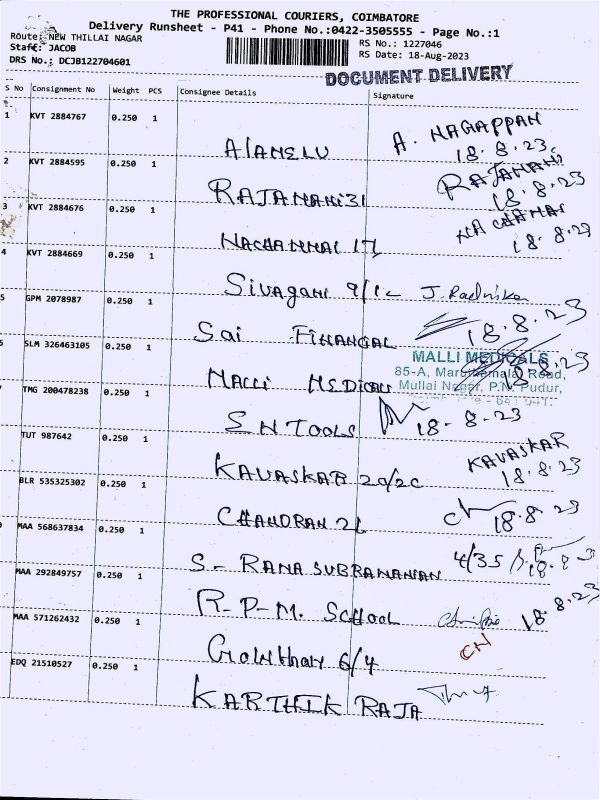 THE PROFESSIONAL COURIERS, COIMBATORE
Delivery Runsheet - P41 - Phone No.:0422-3505555 - Page No.:1
Route: NEW THILLAI NAGAR
RS No.: 1227046
Staff: JACOB
RS Date: 18-Aug-2023
DRS No.: DCJB122704601
DOCUMENT DELIVERY
S No Consignment No Weight PCS Consignee Details Signature
1 KVT 2884767 0.250 1
AlAMELU A. NAGAPPAN
18.8.23
2 KVT 2884595 0.250 1
RAJAMANI 31 RAJAMANI
18.8.23
3 KVT 2884676 0.250 1
NACHAMMAI 17 NACHAMAI
18.8.23
4 KVT 2884669 0.250 1
SIVAGAMI 9/12 J. Radhika
5 GPM 2078987 0.250 1
Sai FINANCAL 18.8.23
6 SLM 326463105 0.250 1
MALLI MEDICALS
85-A, Maruthamalai Road,
Mullai Nagar, P.N. Pudur,
MALLI MEDICALS 18.8.23
TMG 200478238 0.250 1
S N TOOLS 18-8-23
TUT 987642 0.250 1
KAVASKAR 20/20 KAVASKAR
18.8.23
BLR 535325302 0.250 1
CHANDRAN 26 18.8.23
MAA 568637834 0.250 1
S- RAMA SUBRAMANIAN 4/35 18.8.23
MAA 292849757 0.250 1
R-P-M. SCHOOL 18.8.23
MAA 571262432 0.250 1
GOWTHAM 6/4 CN
EDQ 21510527 0.250 1
KARTHIK RAJA